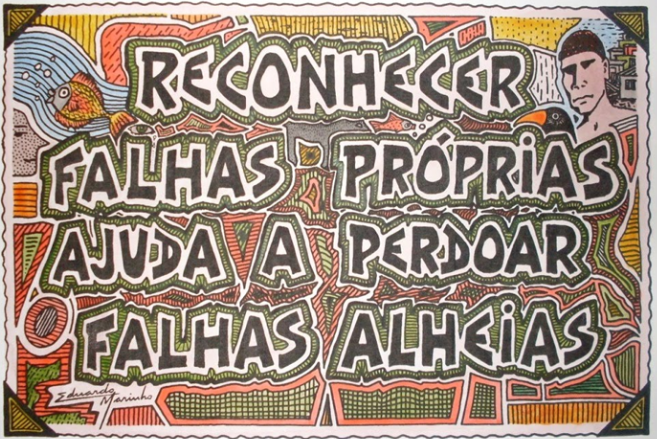 RECONHECER
FALHAS PRÓPRIAS
AJUDA A PERDOAR
FALHAS ALHEIAS
Eduardo Marinho